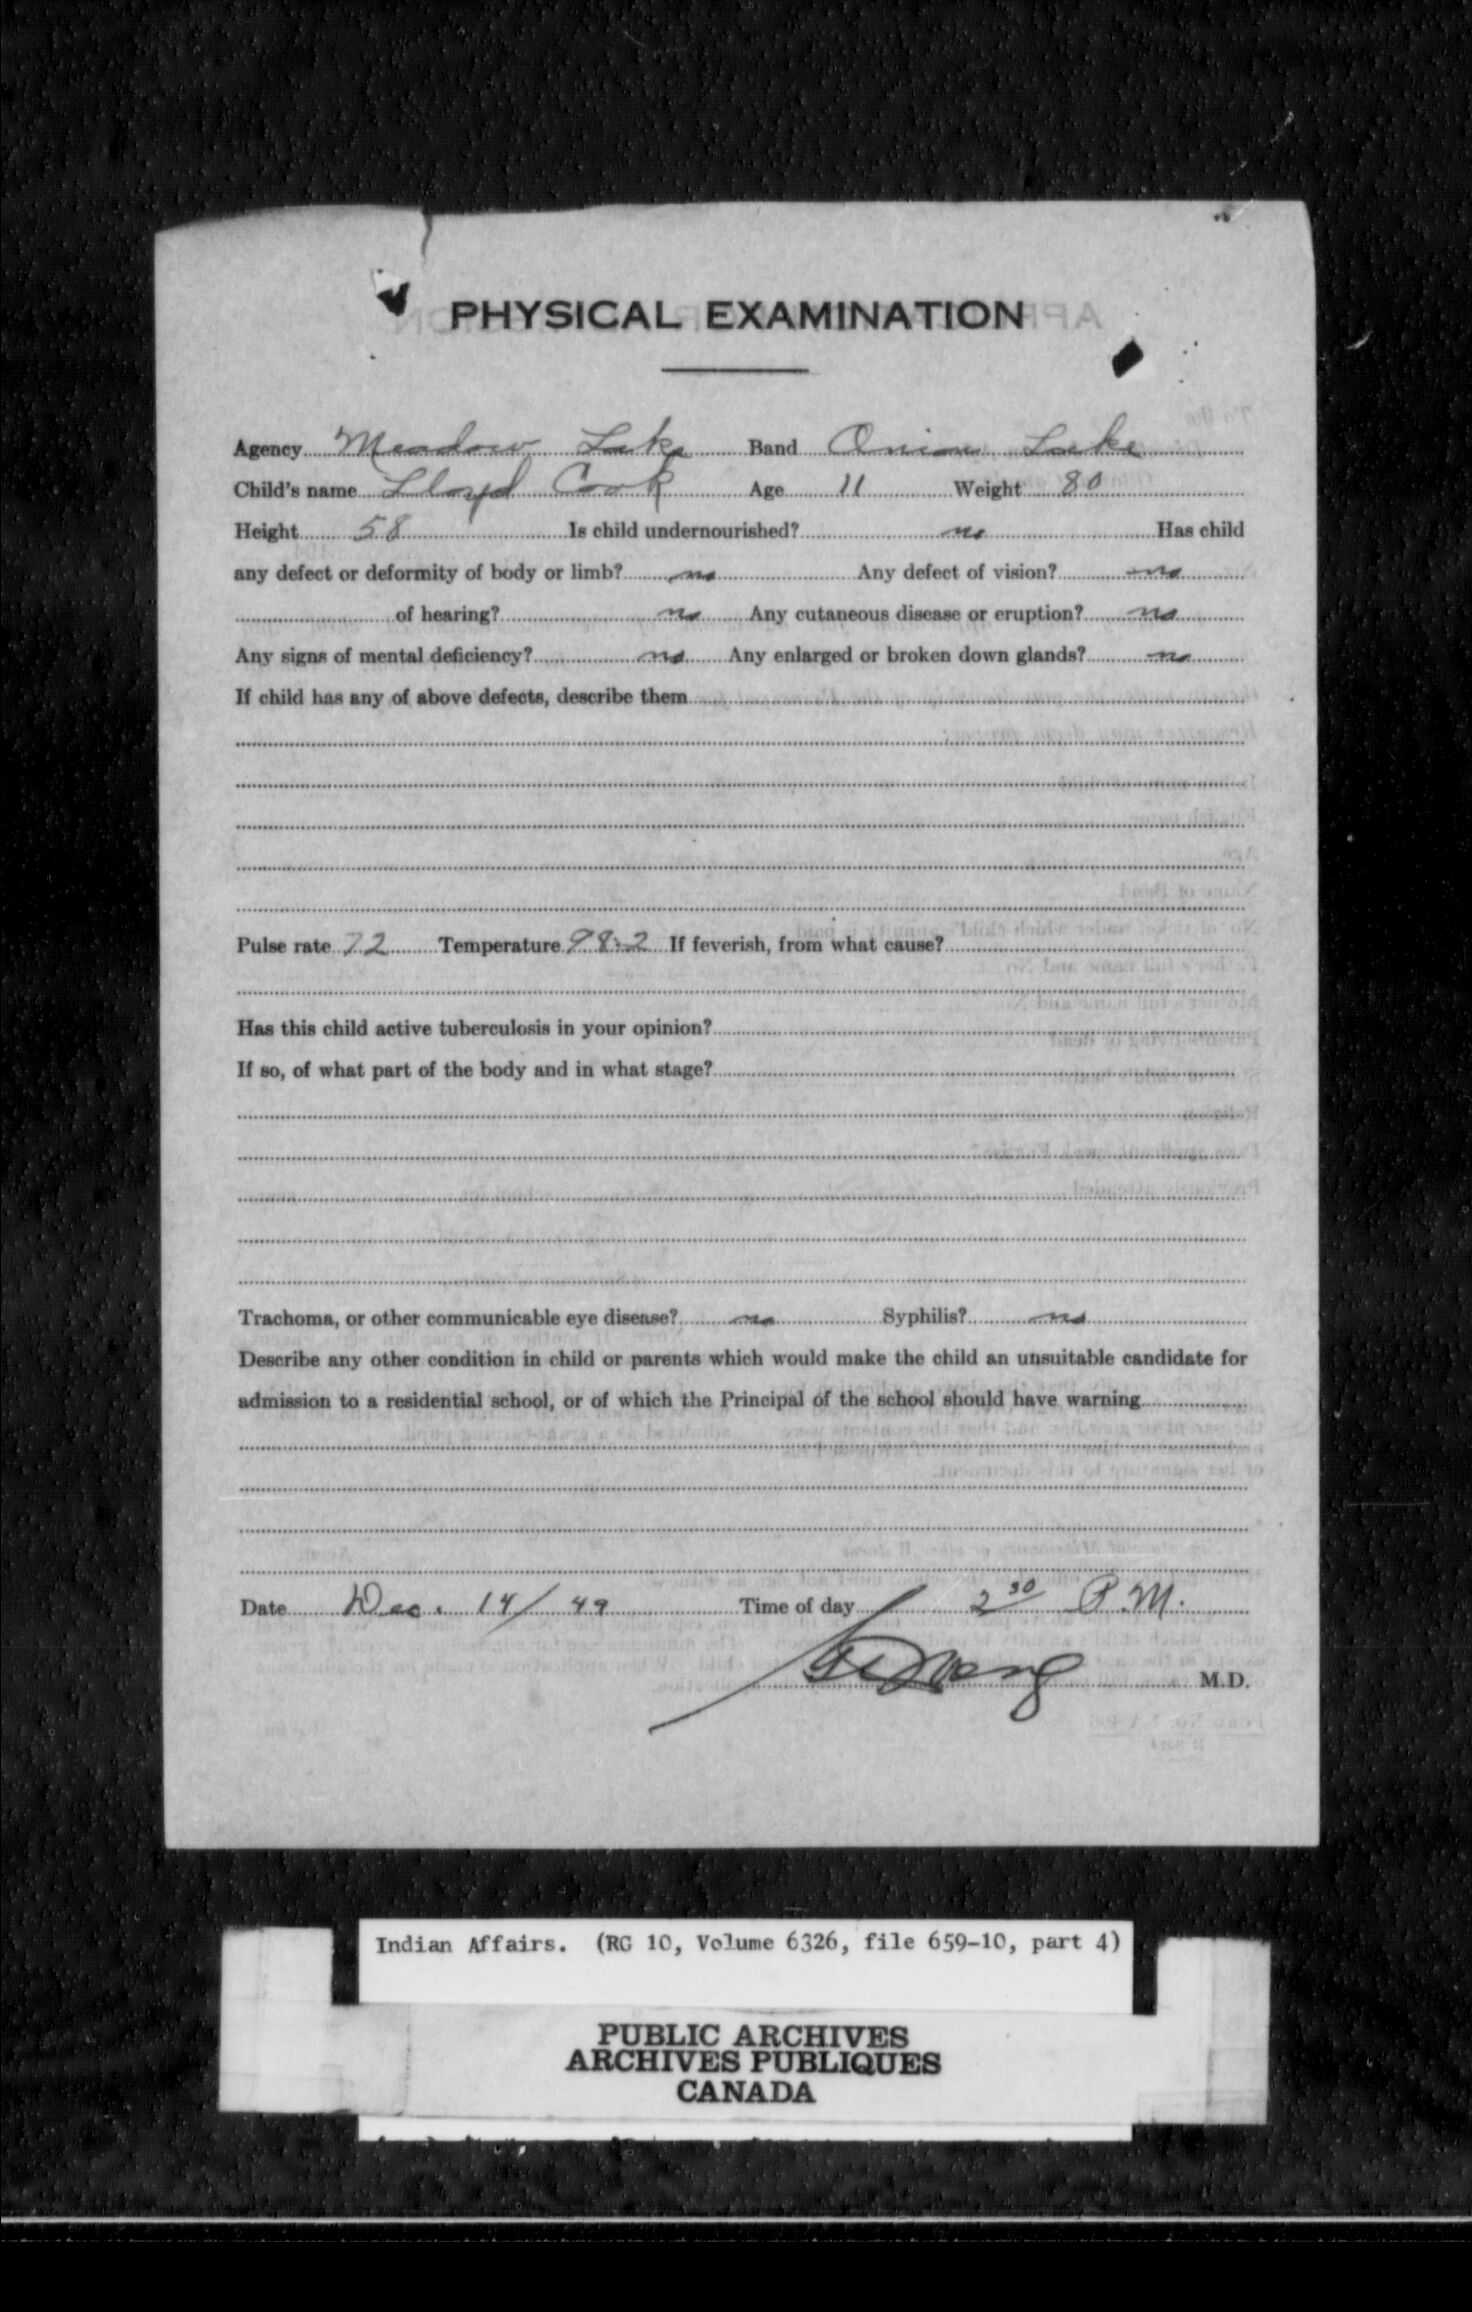 PHYSICAL EXAMINATION
Agency Meadow Lake Band Onion Lake
Child's name Lloyd Cook Age 11 Weight 80
Height 58 Is child undernourished? no Has child
any defect or deformity of body or limb? no Any defect of vision? no
of hearing? no Any cutaneous disease or eruption? no
Any signs of mental deficiency? no Any enlarged or broken down glands? no
If child has any of above defects, describe them
Pulse rate 72 Temperature 98.2 If feverish, from what cause?
Has this child active tuberculosis in your opinion?
If so, of what part of the body and in what stage?
Trachoma, or other communicable eye disease? no Syphilis? no
Describe any other condition in child or parents which would make the child an unsuitable candidate for
admission to a residential school, or of which the Principal of the school should have warning
Date Dec. 14/49 Time of day 2 30 P.M.
M.D.
Indian Affairs. (RG 10, Volume 6326, file 659-10, part 4)
PUBLIC ARCHIVES
ARCHIVES PUBLIQUES
CANADA